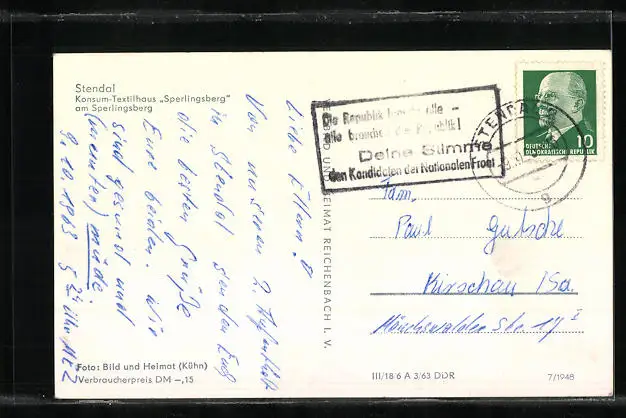 Stendal
Konsum-Textilhaus „Sperlingsberg"
am Sperlingsberg
Liebe Eltern!
Von unserem 2.
in Stendal senden Euch
die besten Grüße
Eure beiden. Wir
sind gesund und
müde.
9.10.1963
Foto: Bild und Heimat (Kühn)
Verbraucherpreis DM –,15
BILD UND HEIMAT REICHENBACH I. V.
Die Republik braucht alle –
alle brauchen die Republik!
Deine Stimme
den Kandidaten der Nationalen Front
STENDAL
DEUTSCHE
DEMOKRATISCHE REPUBLIK
10
Fam.
Paul Gutsche
Kirschau /Sa.
III/18/6 A 3/63 DDR
7/1948